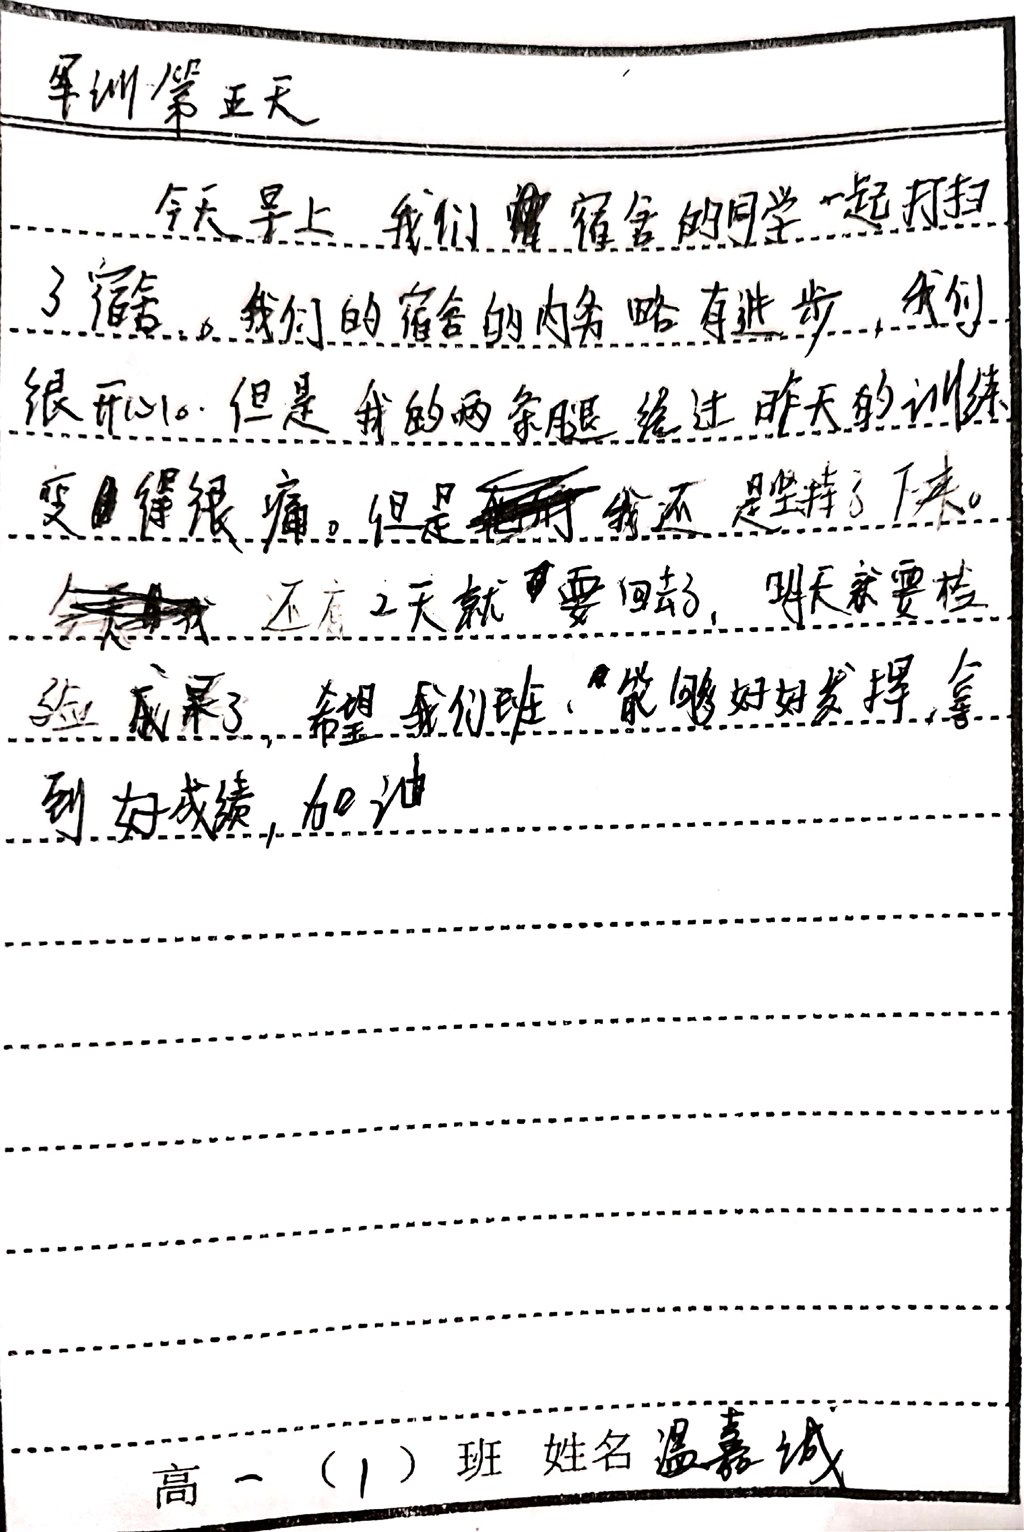 军训第五天
今天早上 我们宿舍的同学一起打扫
了宿舍。我们的宿舍的内务略有进步,我们
很开心。但是我的两条腿经过昨天的训练
变得很痛。但是我还是坚持了下来。
还有2天就要回去了,明天就要检
验成果了,希望我们班能够好好发挥,拿
到好成绩,加油
高一(1)班 姓名 温嘉诚